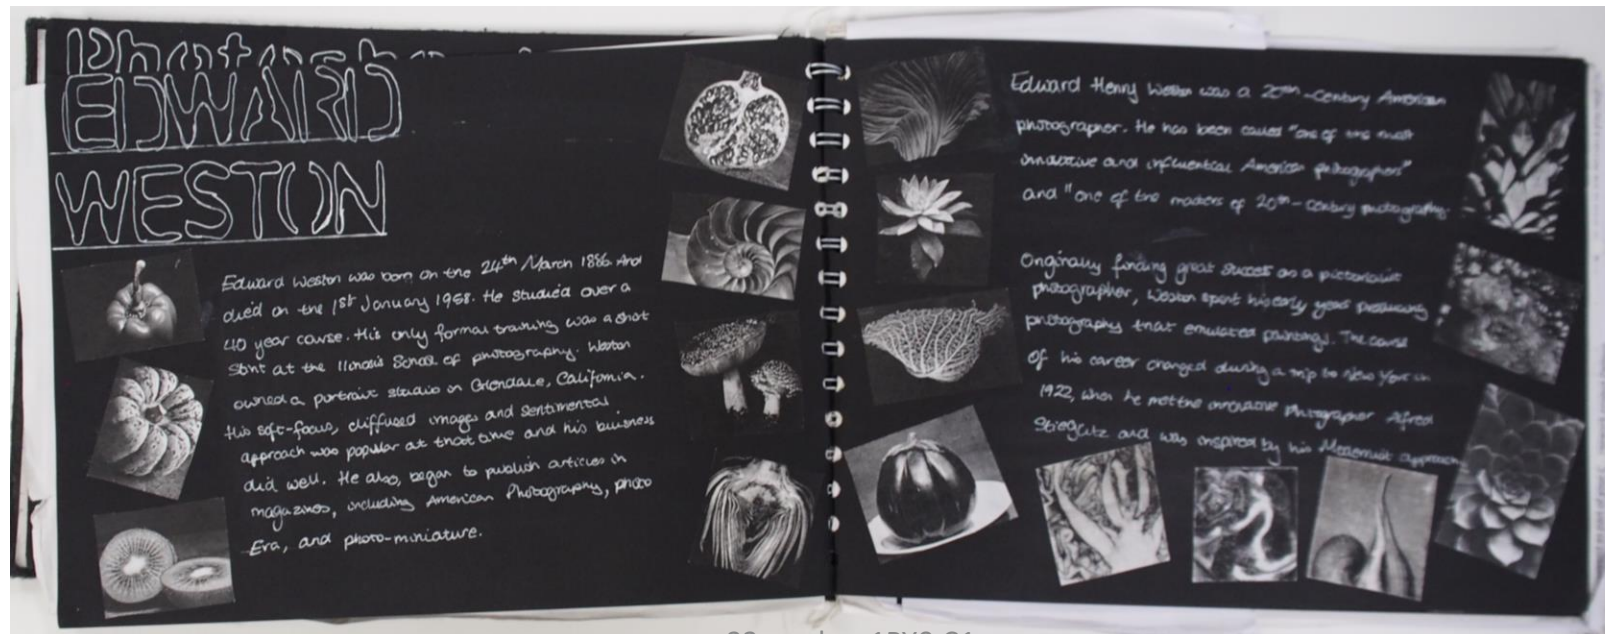 EDWARD
WESTON
Edward Weston was born on the 24th March 1886. And
died on the 1st January 1958. He studied over a
40 year course. His only formal training was a short
stint at the Illonois School of photography. Weston
owned a portrait studio in Glendale, California.
His soft-focus, diffused images and sentimental
approach was popular at that time and his business
did well. He also, began to publish articles in
magazines, including American Photography, photo
Era, and photo-miniature.
Edward Henry Weston was a 20th-Century American
photographer. He has been called "one of the most
innovative and influential American photographers"
and "one of the masters of 20th-Century photography.
Originally finding great success as a pictorialist
photographer, Weston spent his early years producing
photography that emulated paintings. The course
of his career changed during a trip to New York in
1922, when he met the innovative photographer Alfred
Stieglitz and was inspired by his Modernist approach